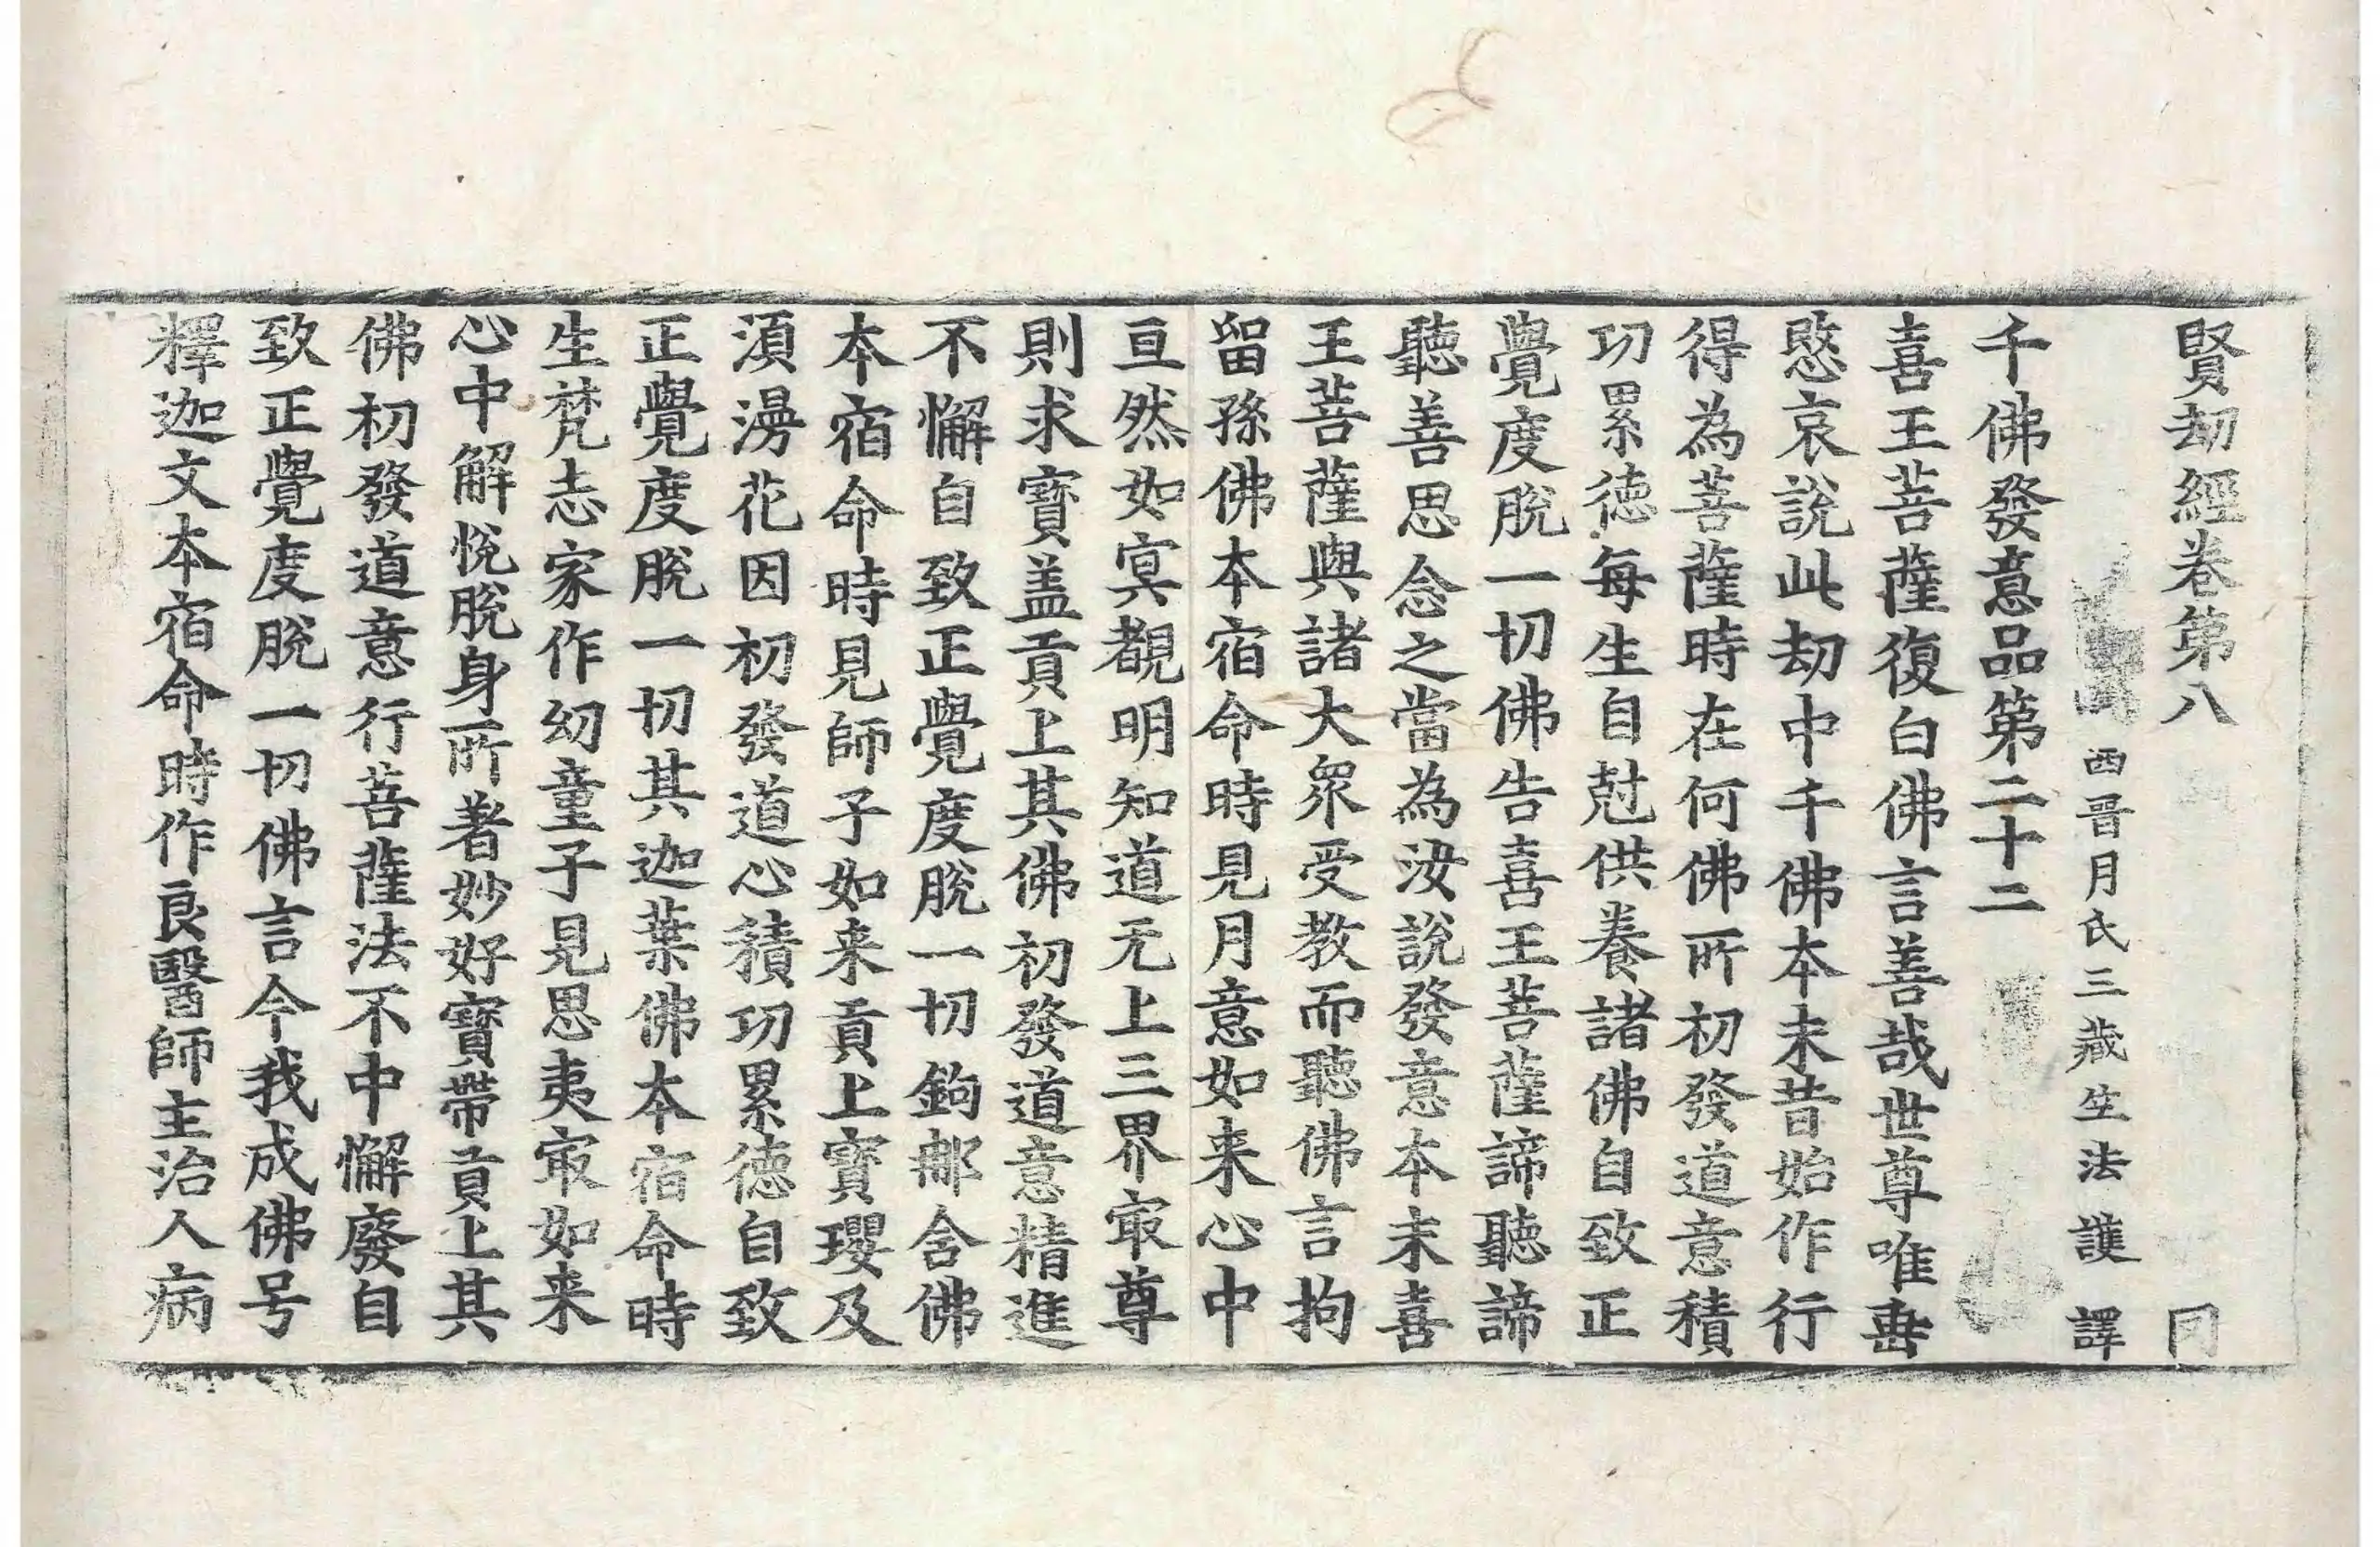 賢劫經卷第八 冃
西晋月氏三藏竺法護 譯
千佛發意品第二十二
喜王菩薩復白佛言善哉世尊唯垂
愍哀說此劫中千佛本末昔始作行
得為菩薩時在何佛所初發道意積
功累徳每生自尅供養諸佛自致正
覺度脫一切佛告喜王菩薩諦聽諦
聽善思念之當為汝說發意本末喜
王菩薩與諸大衆受教而聽佛言拘
留孫佛本宿命時見月意如来心中
亘然如㝠覩明知道无上三界㝡尊
則求寶盖貢上其佛初發道意精進
不懈自致正覺度脫一切鉤郍含佛
本宿命時見師子如来貢上寶瓔及
湏湯花因初發道心積功累徳自致
正覺度脫一切其迦葉佛本宿命時
生梵志家作幼童子見思夷㝡如来
心中解悅脫身所著妙好寶帶貢上其
佛初發道意行菩薩法不中懈廢自
致正覺度脫一切佛言今我成佛号
釋迦文本宿命時作良醫師主治人病